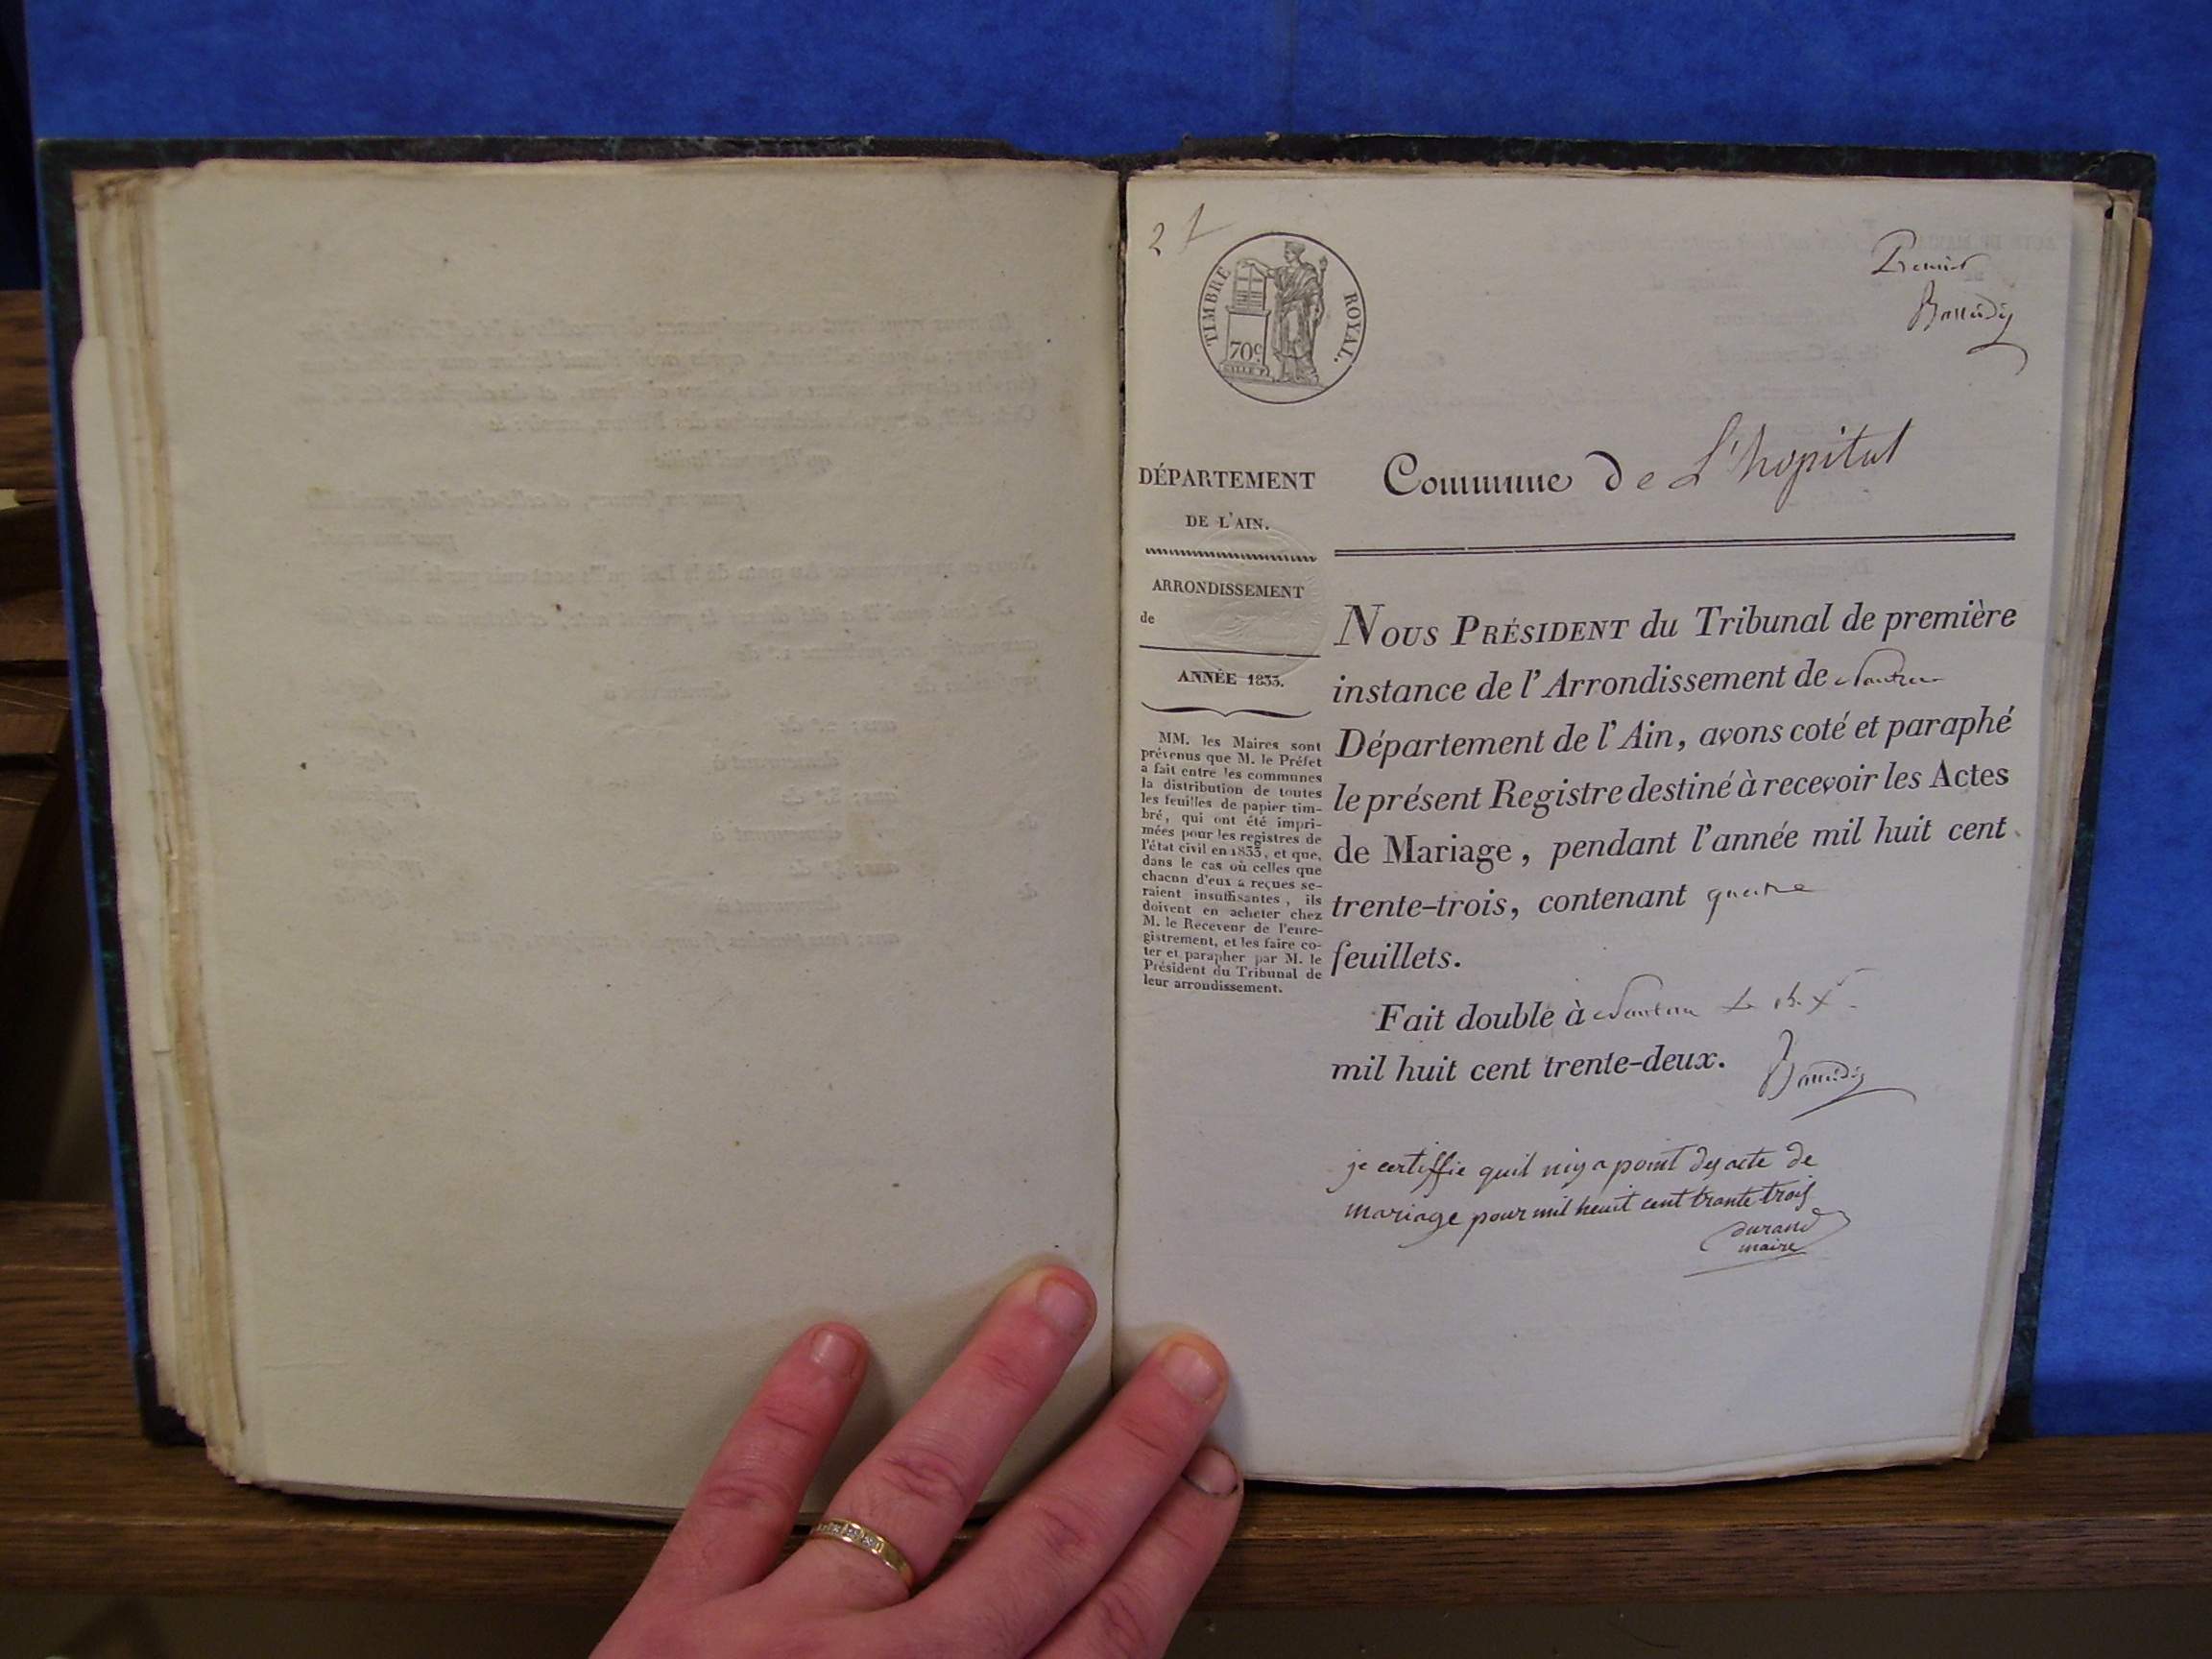 2
TIMBRE ROYAL.
70c
Premier
Commune de L'hopital
DÉPARTEMENT
DE L'AIN.
ARRONDISSEMENT
de
ANNÉE 1833.
MM. les Maires sont
prévenus que M. le Préfet
a fait entre les communes
la distribution de toutes
les feuilles de papier tim-
bré, qui ont été impri-
mées pour les registres de
l'état civil en 1833, et que,
dans le cas où celles que
chacun d'eux a reçues se-
raient insuffisantes, ils
doivent en acheter chez
M. le Receveur de l'enre-
gistrement, et les faire co-
ter et parapher par M. le
Président du Tribunal de
leur arrondissement.
NOUS PRÉSIDENT du Tribunal de première
instance de l'Arrondissement de Nantua
Département de l'Ain, avons coté et paraphé
le présent Registre destiné à recevoir les Actes
de Mariage, pendant l'année mil huit cent
trente-trois, contenant quatre
feuillets.
Fait double à Nantua
mil huit cent trente-deux.
je certiffie quil niy a point des acte de
mariage pour mil heuit cent trante trois
durand
maire